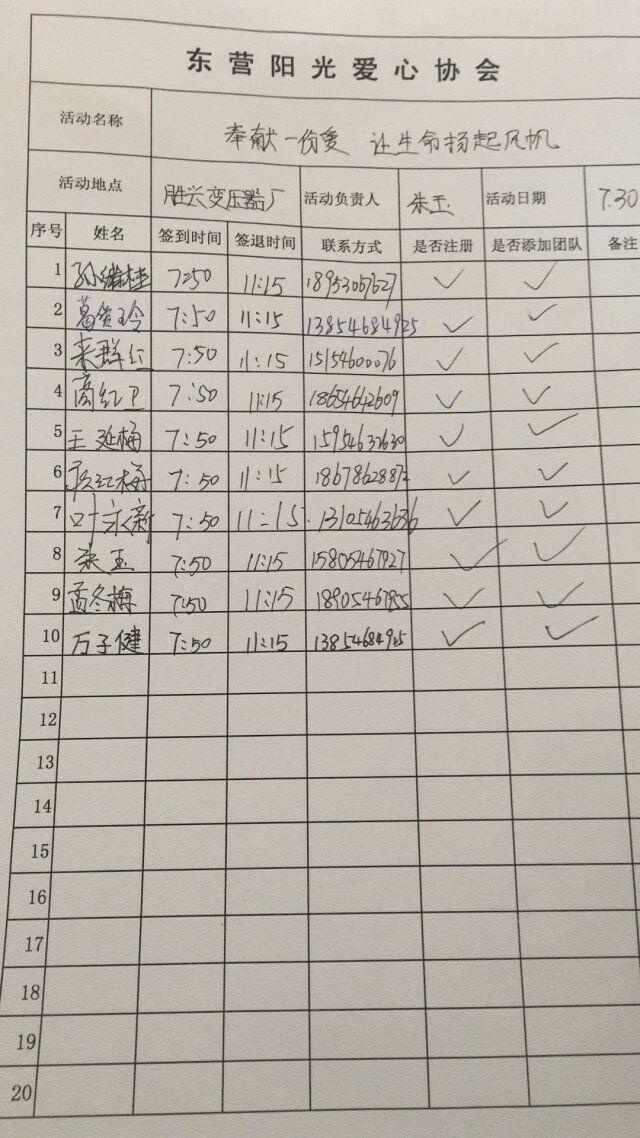 东营阳光爱心协会
活动名称 奉献一份爱 让生命扬起风帆
活动地点 胜兴变压器厂 活动负责人 朱玉 活动日期 7.30
序号 姓名 签到时间 签退时间 联系方式 是否注册 是否添加团队 备注
1 7:50 11:15 18953067627 ✓ ✓
2 7:50 11:15 13854684925 ✓ ✓
3 来群红 7:50 11:15 15154600076 ✓ ✓
4 高红卫 7:50 11:15 18654642609 ✓ ✓
5 王延梅 7:50 11:15 15954632630 ✓ ✓
6 7:50 11:15 18678628872 ✓ ✓
7 叶永新 7:50 11:15 13105463636 ✓ ✓
8 朱玉 7:50 11:15 15805467927 ✓ ✓
9 孟冬梅 7:50 11:15 18905467855 ✓ ✓
10 万子健 7:50 11:15 13854684925 ✓ ✓
11
12
13
14
15
16
17
18
19
20